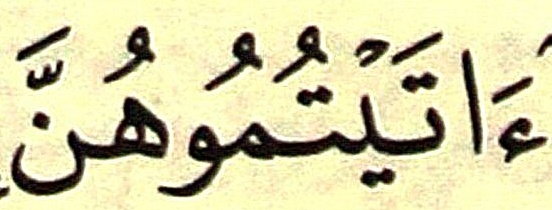 ءَاتَيْتُمُوهُنَّ